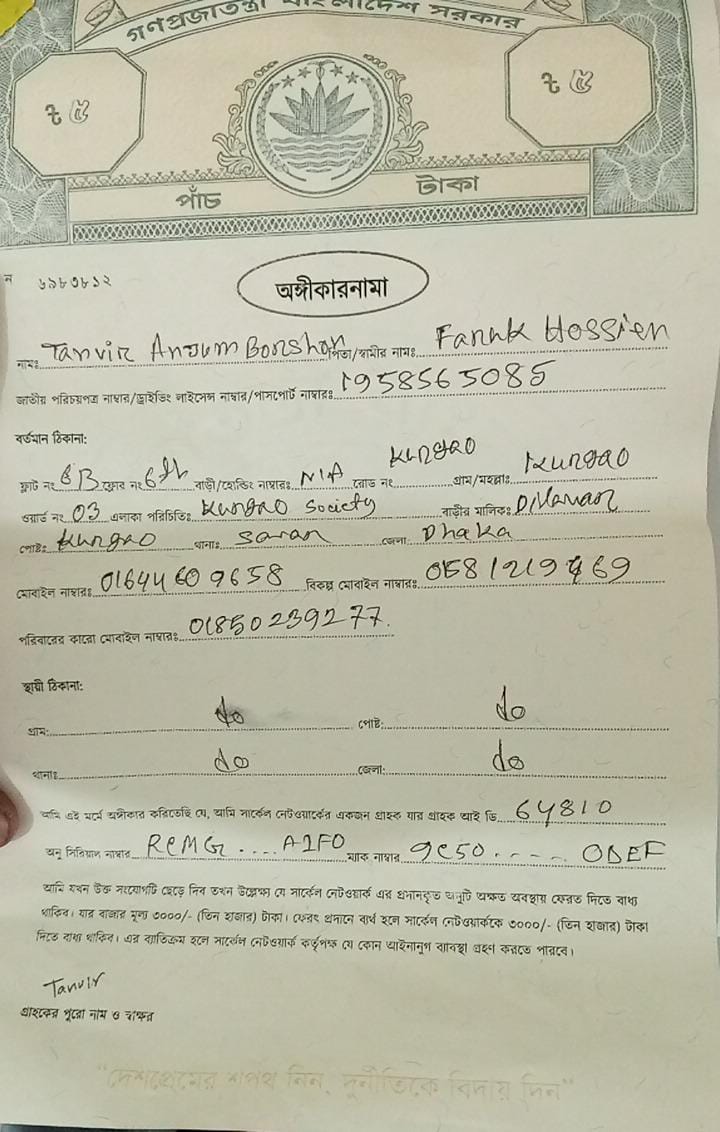 গণপ্রজাতন্ত্রী বাংলাদেশ সরকার
৳ ৫ ৳ ৫
পাঁচ টাকা
ন ৬৯৮৩৮১২
অঙ্গীকারনামা
নামঃ Tanvir Anjum Bonshon পিতা/স্বামীর নামঃ Faruk Hossien
জাতীয় পরিচয়পত্র নাম্বার/ড্রাইভিং লাইসেন্স নাম্বার/পাসপোর্ট নাম্বারঃ 1958565085
বর্তমান ঠিকানা:
ফ্লাট নং 6B ফ্লোর নং 6th বাড়ী/হোল্ডিং নাম্বারঃ N/A রোড নং Kungao গ্রাম/মহল্লাঃ Kungao
ওয়ার্ড নং 03 এলাকা পরিচিতিঃ Kungao Society বাড়ীর মালিকঃ Dilawar
পোষ্টঃ Kungao থানাঃ Savar জেলা Dhaka
মোবাইল নাম্বারঃ 01644609658 বিকল্প মোবাইল নাম্বারঃ
পরিবারের কারো মোবাইল নাম্বারঃ 01850239277.
স্থায়ী ঠিকানা:
গ্রাম: do পোষ্ট: do
থানাঃ do জেলা: do
আমি এই মর্মে অঙ্গীকার করিতেছি যে, আমি সার্কেল নেটওয়ার্কের একজন গ্রাহক যার গ্রাহক আই ডি 64810
অনু সিরিয়াল নাম্বার RCMG .... A1F0 ম্যাক নাম্বার 9C50 ..... 0DEF
আমি যখন উক্ত সংযোগটি ছেড়ে দিব তখন উল্লেক্ষ্য যে সার্কেল নেটওয়ার্ক এর প্রদানকৃত অনুটি অক্ষত অবস্থায় ফেরত দিতে বাধ্য
থাকিব। যার বাজার মূল্য ৩০০০/- (তিন হাজার) টাকা। ফেরৎ প্রদানে ব্যর্থ হলে সার্কেল নেটওয়ার্ককে ৩০০০/- (তিন হাজার) টাকা
দিতে বাধ্য থাকিব। এর ব্যতিক্রম হলে সার্কেল নেটওয়ার্ক কর্তৃপক্ষ যে কোন আইনানুগ ব্যাবস্থা গ্রহণ করতে পারবে।
Tanvir
গ্রাহকের পুরো নাম ও স্বাক্ষর
"দেশপ্রেমের শপথ নিন, দুর্নীতিকে বিদায় দিন"